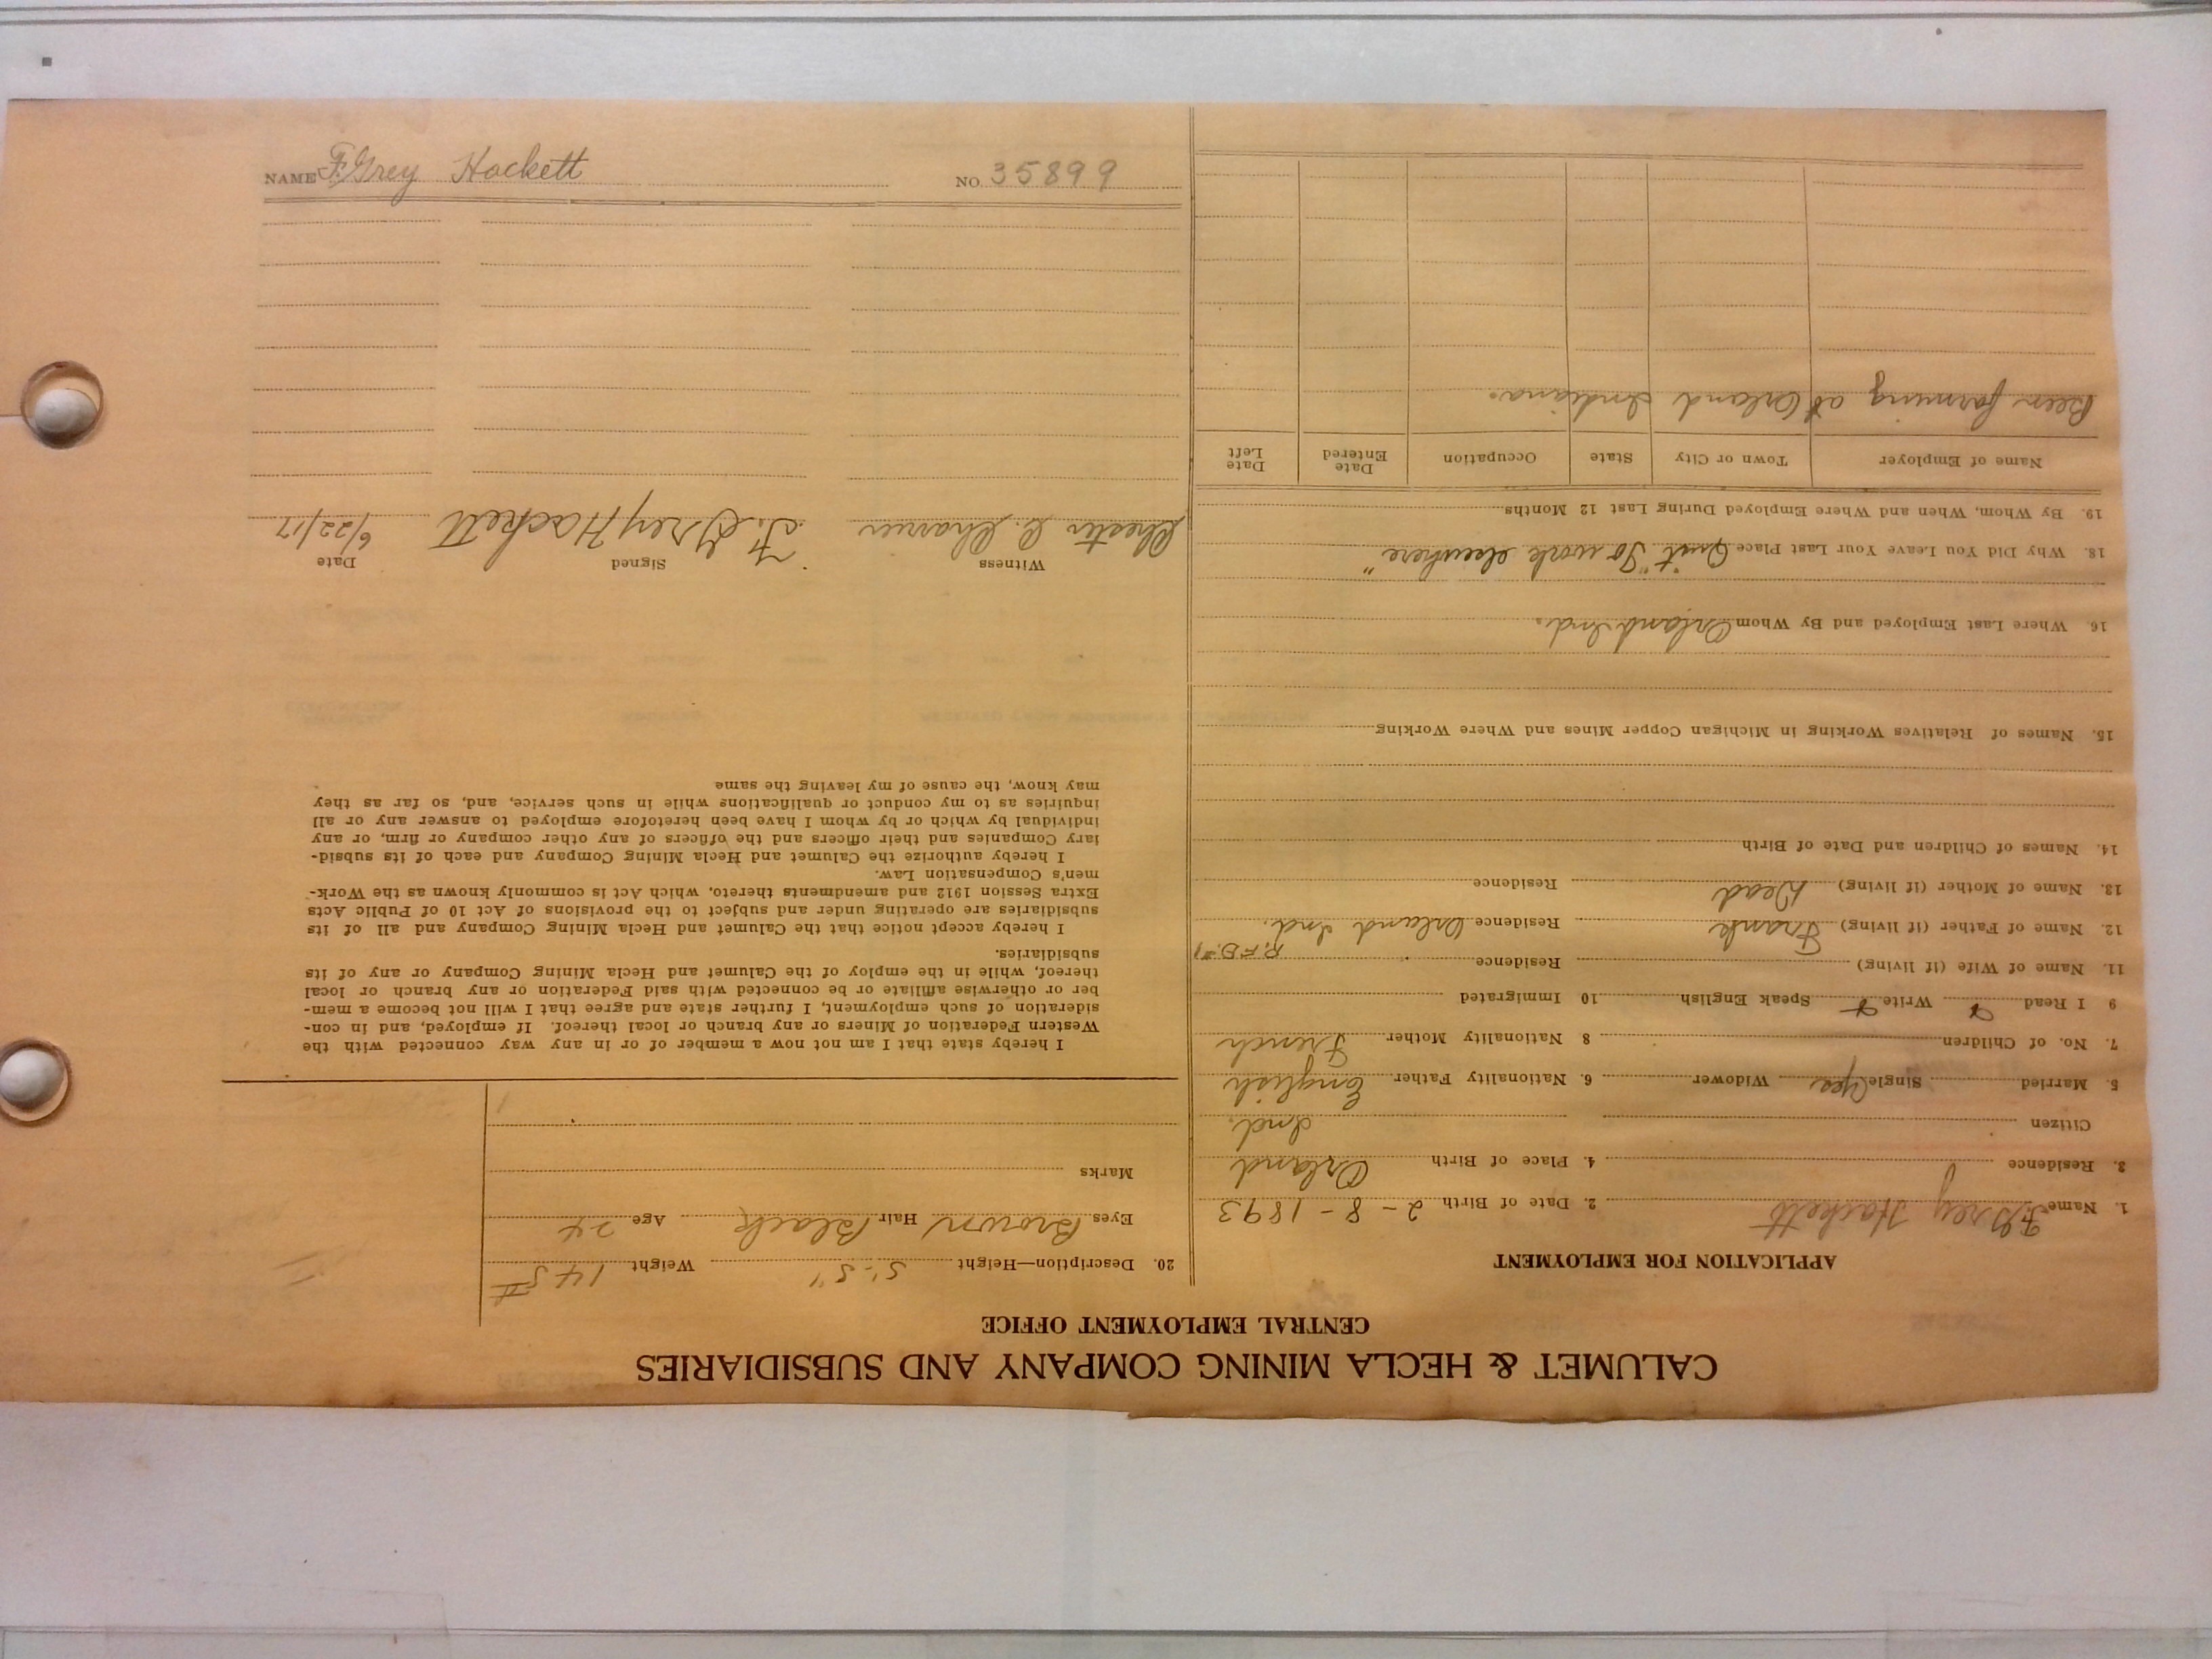 CALUMET & HECLA MINING COMPANY AND SUBSIDIARIES
CENTRAL EMPLOYMENT OFFICE
APPLICATION FOR EMPLOYMENT
1. Name F. Grey Hackett 2. Date of Birth 2 - 8 - 1893
3. Residence 4. Place of Birth Orland
Citizen Ind.
5. Married Single Yes Widower 6. Nationality Father English
7. No. of Children 8 Nationality Mother French
9 I Read Write Speak English 10 Immigrated
11. Name of Wife (if living) Residence R.F.D. #1
12. Name of Father (if living) Frank Residence Orland Ind.
13. Name of Mother (if living) Dead Residence
14. Names of Children and Date of Birth
15. Names of Relatives Working in Michigan Copper Mines and Where Working
16. Where Last Employed and By Whom Orland Ind.
18. Why Did You Leave Your Last Place Quit "To work elsewhere"
19. By Whom, When and Where Employed During Last 12 Months
Name of Employer Town or City State Occupation Date Entered Date Left
Been farming at Orland Indiana.
20. Description—Height 5'-5" Weight 145 #
Eyes Brown Hair Black Age 24
Marks
I hereby state that I am not now a member of or in any way connected with the
Western Federation of Miners or any branch or local thereof. If employed, and in con-
sideration of such employment, I further state and agree that I will not become a mem-
ber or otherwise affiliate or be connected with said Federation or any branch or local
thereof, while in the employ of the Calumet and Hecla Mining Company or any of its
subsidiaries.
I hereby accept notice that the Calumet and Hecla Mining Company and all of its
subsidiaries are operating under and subject to the provisions of Act 10 of Public Acts
Extra Session 1912 and amendments thereto, which Act is commonly known as the Work-
men's Compensation Law.
I hereby authorize the Calumet and Hecla Mining Company and each of its subsid-
iary Companies and their officers and the officers of any other company or firm, or any
individual by which or by whom I have been heretofore employed to answer any or all
inquiries as to my conduct or qualifications while in such service, and, so far as they
may know, the cause of my leaving the same
Witness Signed Date
Chester C. F. Grey Hackett 6/22/17
NAME F. Grey Hackett NO. 35899